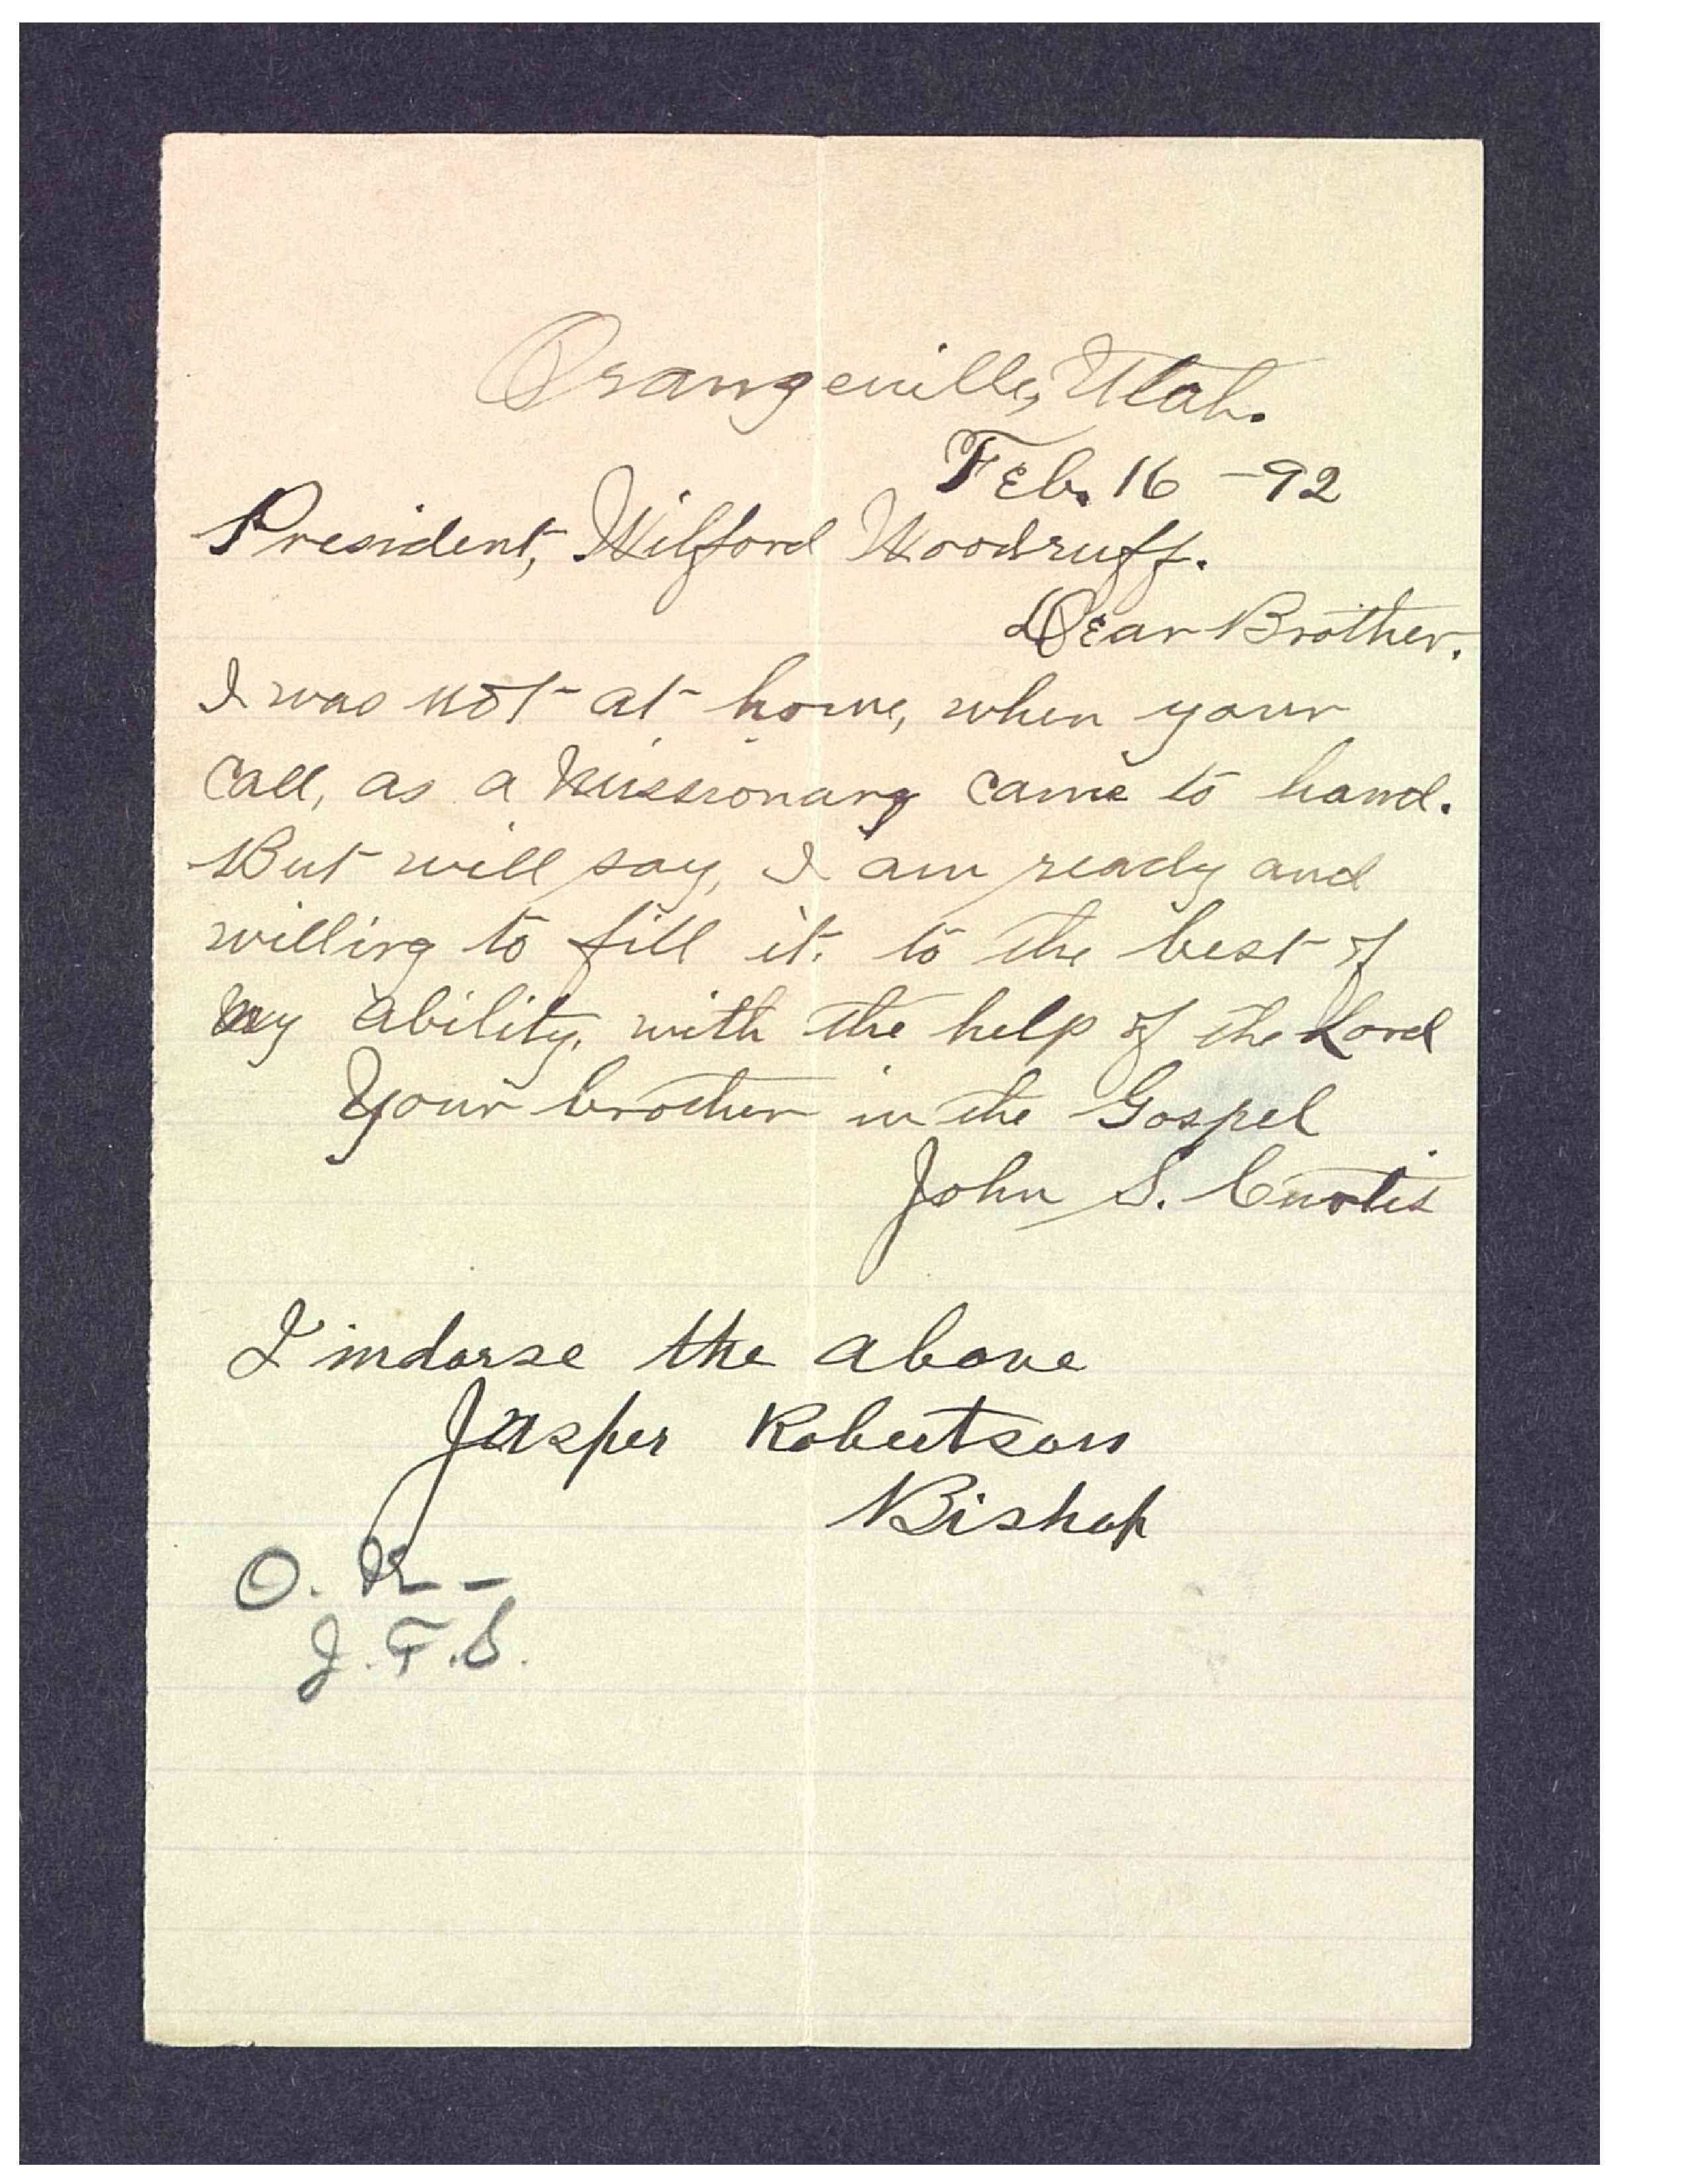 Orangeville, Utah.
Feb. 16 -92
President, Wilford Woodruff.
Dear Brother.
I was not at home, when your
call, as a Missionary came to hand.
But will say, I am ready and
willing to fill it. to the best of
my ability, with the help of the Lord
Your brother in the Gospel
John S. Curtis
I indorse the above
Jasper Robertson
Bishop
O. K -
J. F. S.